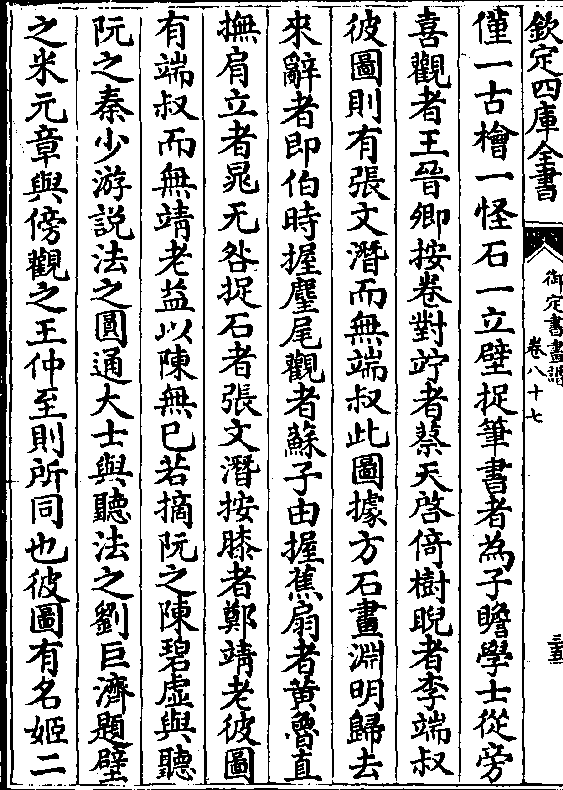 欽定四庫全書
御定書畫譜
卷八十七
三五
僅一古檜一怪石一立壁捉筆書者為子瞻學士從旁
喜觀者王晉卿按卷對竚者蔡天啓倚樹睨者李端叔
彼圖則有張文潛而無端叔此圖據方石畫淵明歸去
來辭者即伯時握麈尾觀者蘇子由握蕉扇者黃魯直
撫肩立者晁无咎捉石者張文潛按膝者鄭靖老彼圖
有端叔而無靖老益以陳無已若摘阮之陳碧虛與聽
阮之秦少游說法之圓通大士與聽法之劉巨濟題壁
之米元章與傍觀之王仲至則所同也彼圖有名姬二